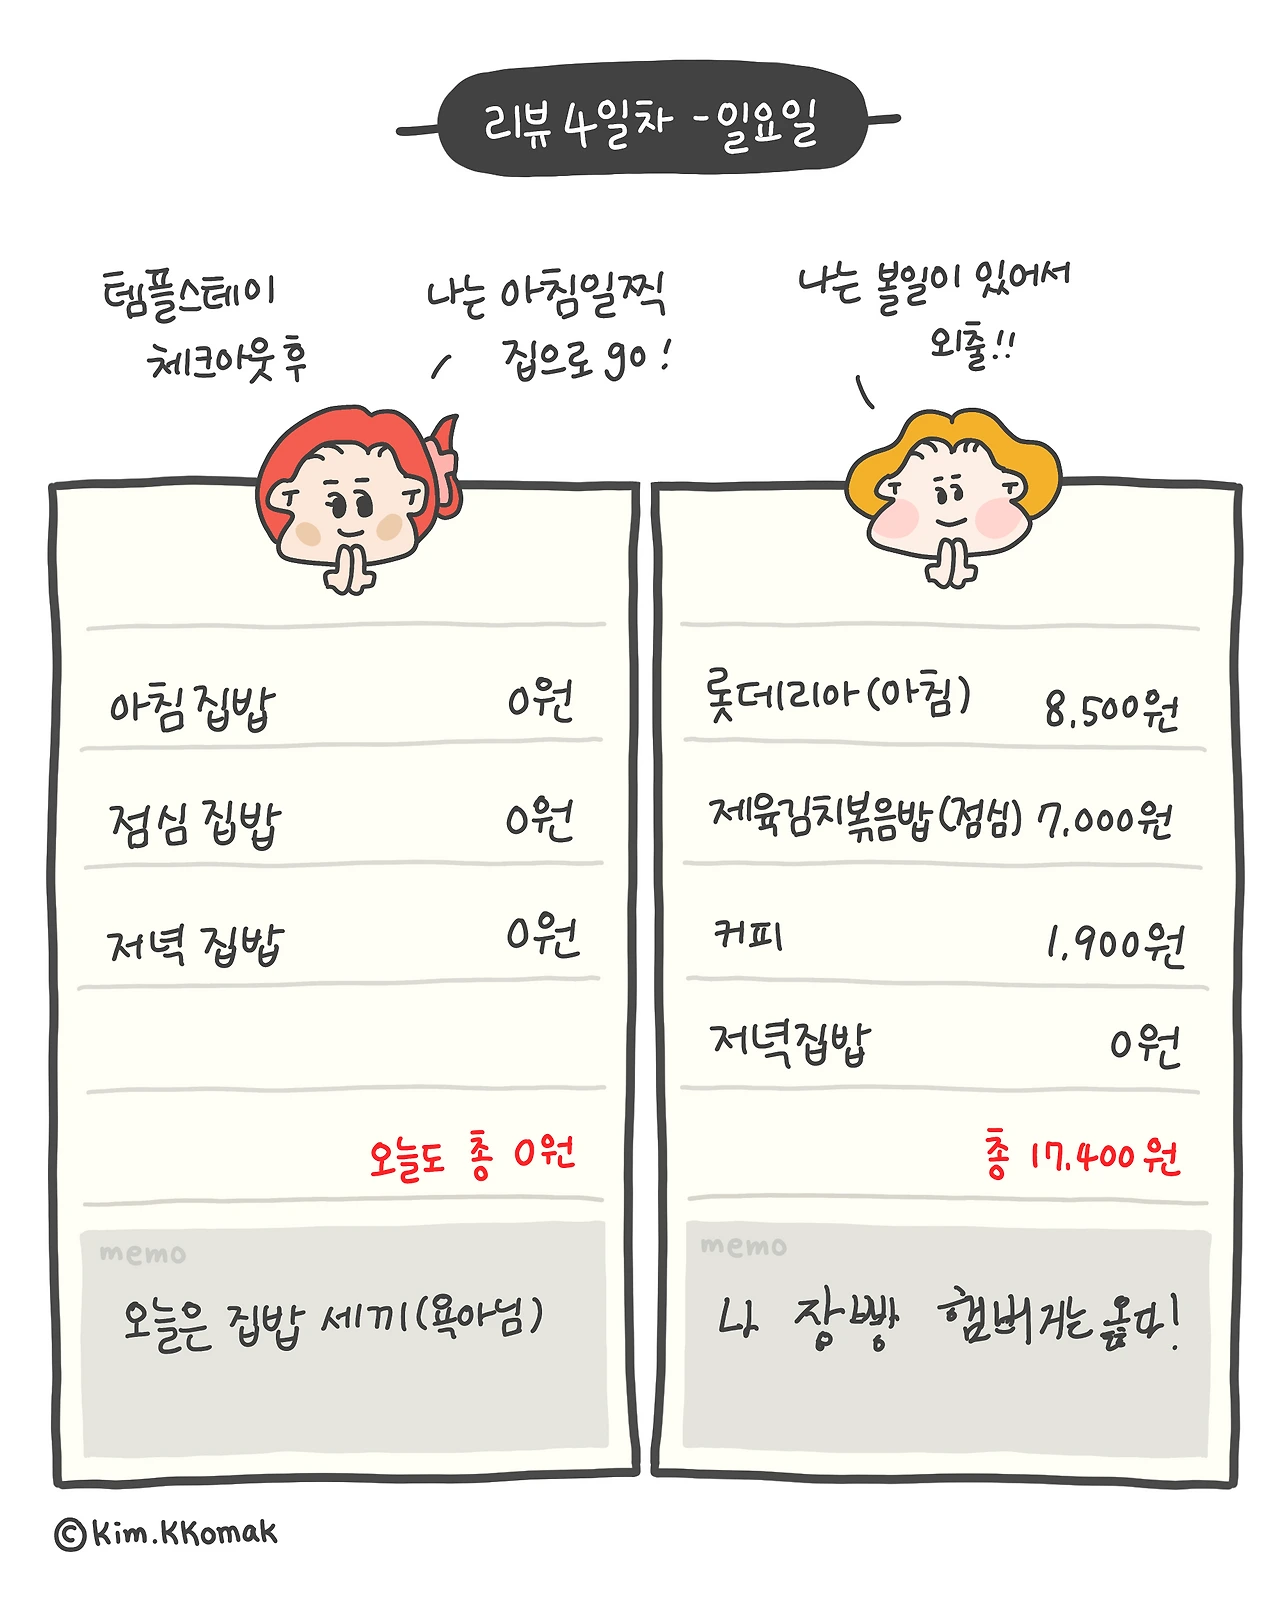 리뷰 4일차 - 일요일
템플스테이
체크아웃 후
나는 아침일찍
집으로 go!
나는 볼일이 있어서
외출!!
아침 집밥 0원
점심 집밥 0원
저녁 집밥 0원
오늘도 총 0원
memo
오늘은 집밥 세끼(욕아님)
롯데리아(아침) 8,500원
제육김치볶음밥(점심) 7,000원
커피 1,900원
저녁집밥 0원
총 17,400원
memo
나 장빵 햄버거는 옳다!
©Kim.KKomak